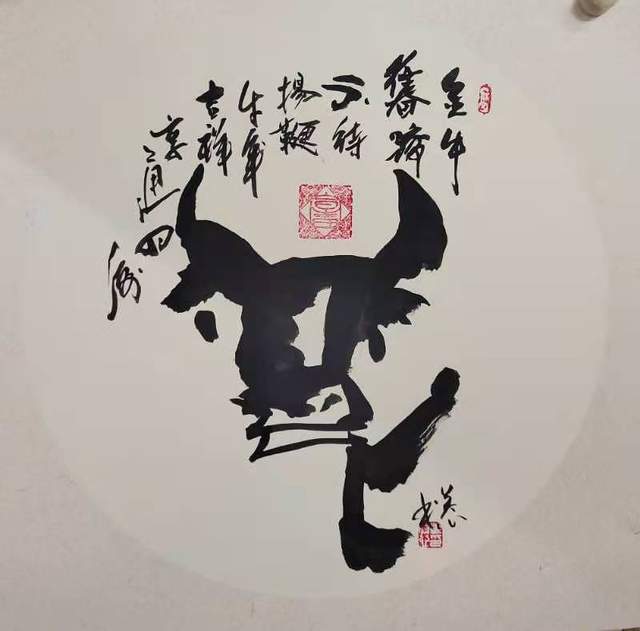 金牛
奮蹄
不待
揚鞭
牛年
吉祥
亨通四海